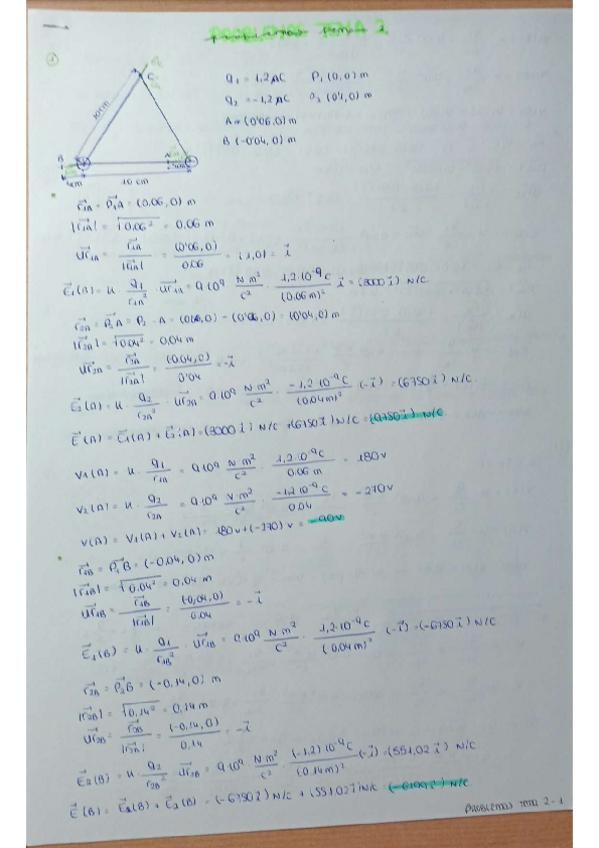 PROBLEMAS TEMA 2
1
C
10 cm
B
A
4cm
10 cm
q1 = 1,2 µC P1 (0,0) m
q2 = -1,2 µC P2 (0'1,0) m
A = (0'06,0) m
B (-0'04,0) m
r1A = P1A = (0.06,0) m
|r1A| = √0.06² = 0.06 m
ur1A = r1A / |r1A| = (0'06,0) / 0.06 = (1,0) = i
E1(B) = u · q1 / r1A² · ur1A = 9·10⁹ N m² / c² · 1,2·10⁻⁹ C / (0.06 m)² i = (3000 i) N/C
r2A = P2A = P2 - A = (0'06,0) = (0'04,0) m
|r2A| = √0.04² = 0.04 m
ur2A = r2A / |r2A| = (0.04,0) / 0'04 = -i
E2(A) = u · q2 / r2A² · ur2A = 9·10⁹ N m² / c² · -1,2·10⁻⁹ C / (0.04m)² (-i) = (6750 i) N/C
E(A) = E1(A) + E2(A) = (3000 i) N/C + (6750 i) N/C = (9750 i) N/C
V1(A) = u · q1 / r1A = 9·10⁹ N m² / c² · 1,2·10⁻⁹ C / 0.06 m = 180v
V2(A) = u · q2 / r2A = 9·10⁹ N m² / c² · -1,2·10⁻⁹ C / 0.04 = -270v
V(A) = V1(A) + V2(A) = 180v + (-270) v = -90v
r1B = P1B = (-0.04,0) m
|r1B| = √0.04² = 0.04 m
ur1B = r1B / |r1B| = (-0,04,0) / 0.04 = -i
E1(B) = u · q1 / r1B² · ur1B = 9·10⁹ N m² / c² · 1,2·10⁻⁹ C / (0.04m)² (-i) = (-6750 i) N/C
r2B = P2B = (-0.14,0) m
|r2B| = √0,14² = 0,14 m
ur2B = r2B / |r2B| = (-0.14,0) / 0,14 = -i
E2(B) = u · q2 / r2B² · ur2B = 9·10⁹ N m² / c² · (-1,2)·10⁻⁹ C / (0.14m)² (-i) = (551,02 i) N/C
E(B) = E1(B) + E2(B) = (-6750 i) N/C + (551.02 i) N/C
PROBLEMAS TEMA 2 - 1